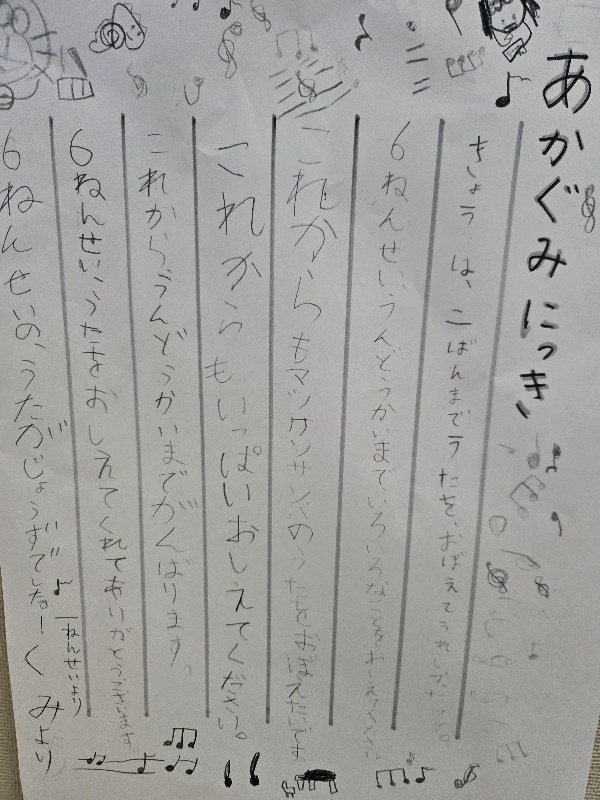 あかぐみにっき
きょうは、こばんまでうたを、おぼえてうれしかったです。
6ねんせい、うんどうかいまで、いろいろなことをおしえてください
これからもマツケンサンバのうたをおぼえたいです。
これからもいっぱいおしえてください。
これから、うんどうかいまでがんばります。
6ねんせい、うたをおしえてくれてありがとうございます。
6ねんせいの、うたがじょうずでした。!くみより
一ねんせいより